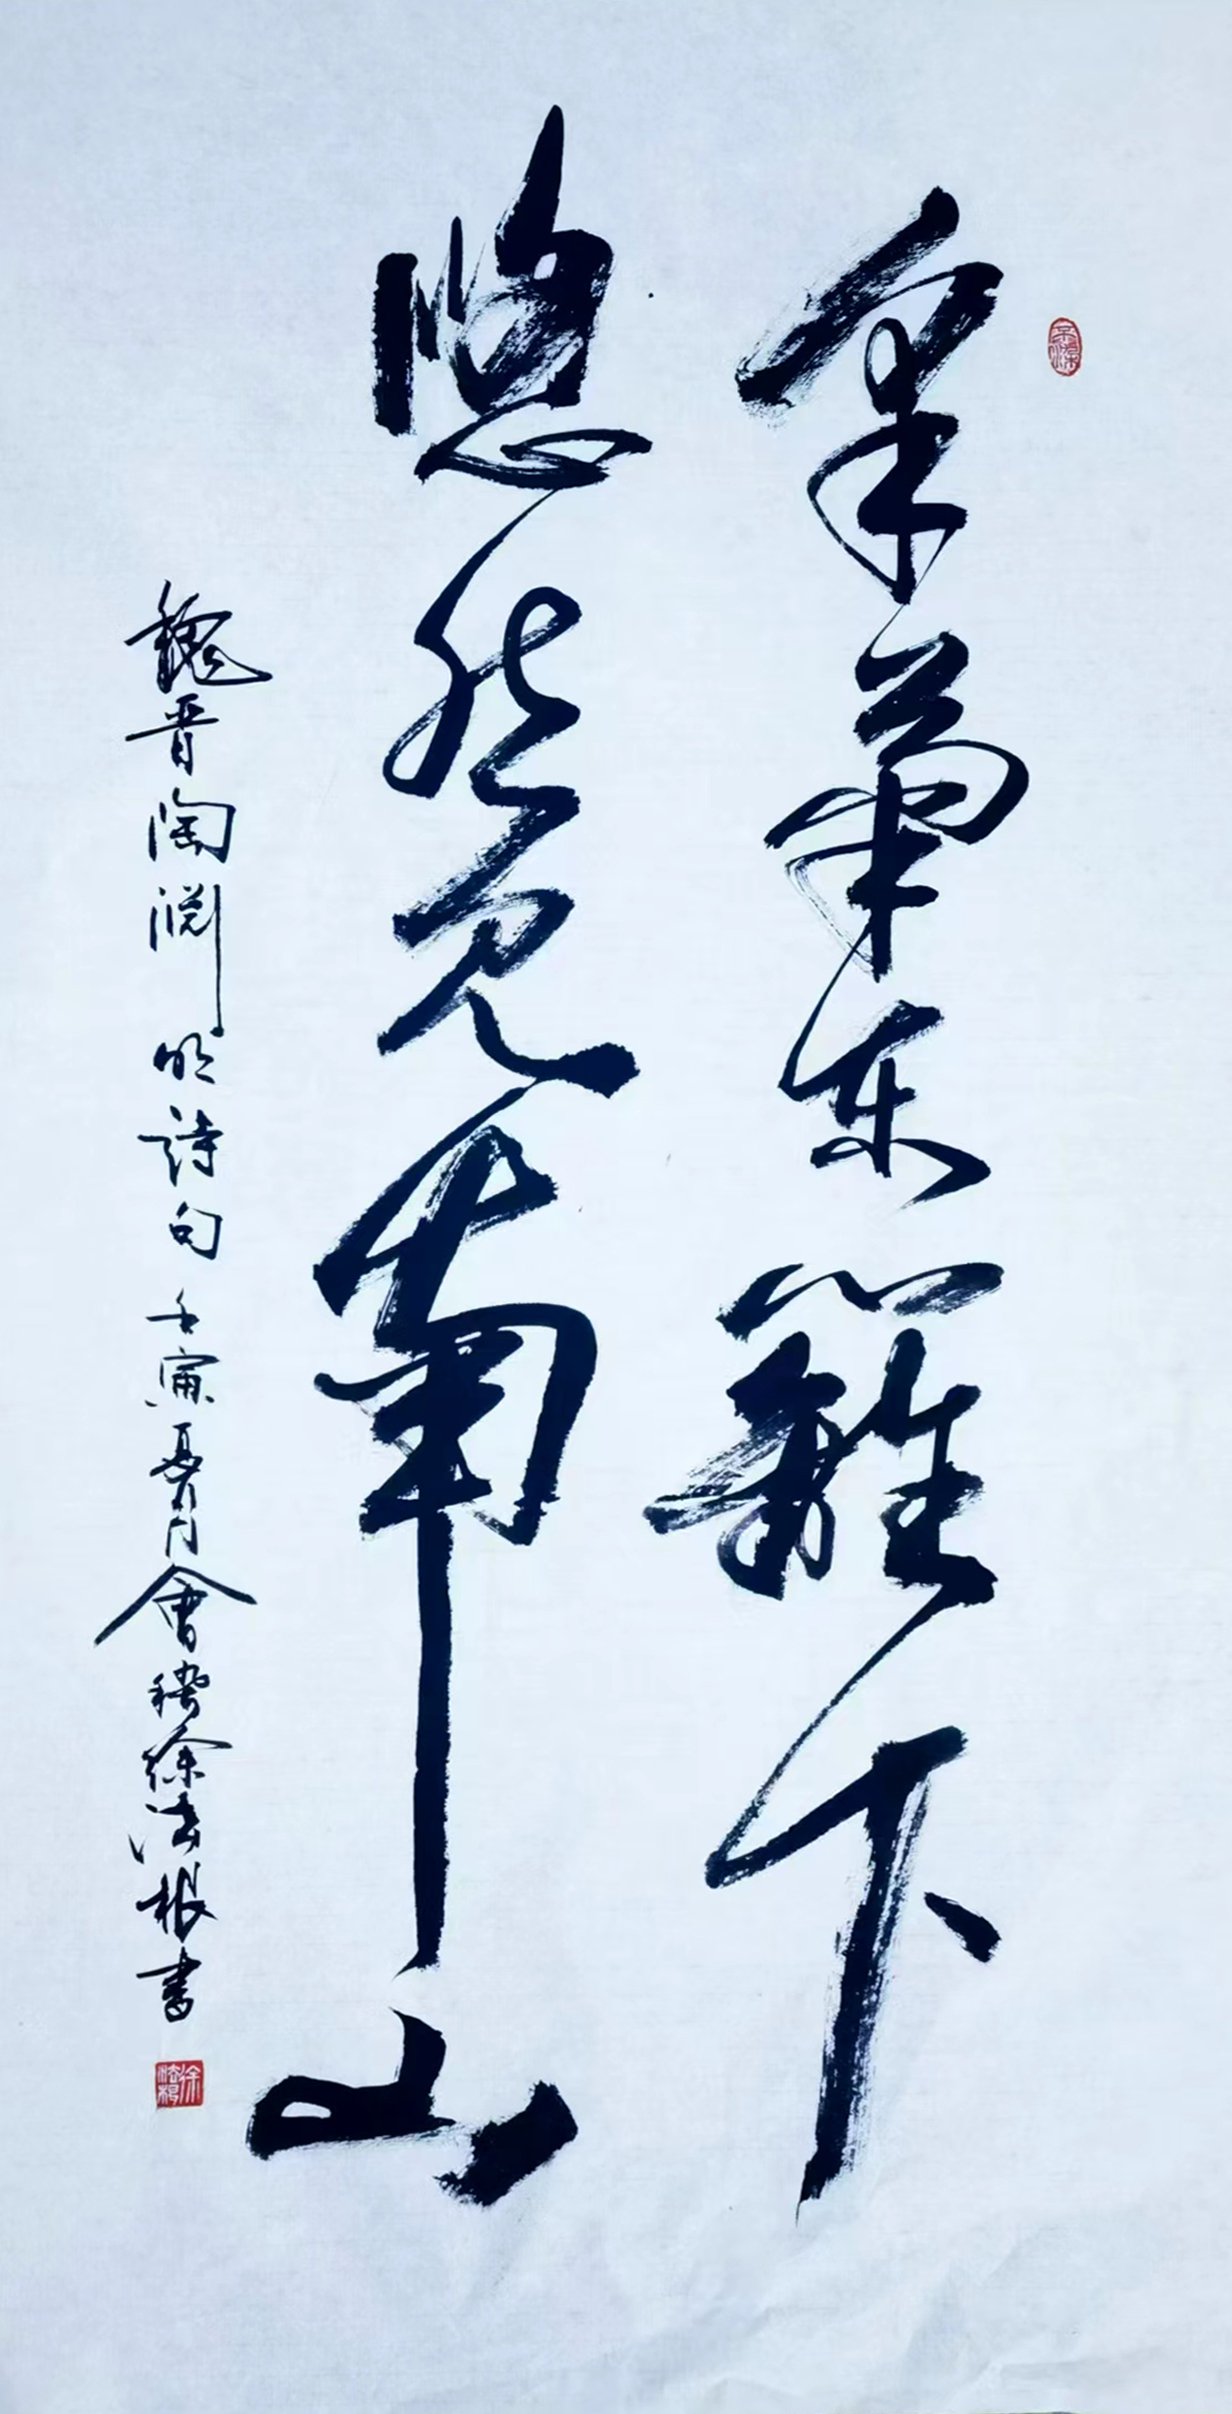 采菊东篱下
悠然见南山
魏晋陶渊明诗句 壬寅夏月会稽徐法根书
徐法根